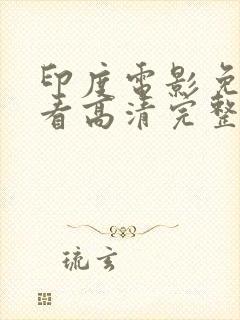 印度电影免
看高清完整
琉玄